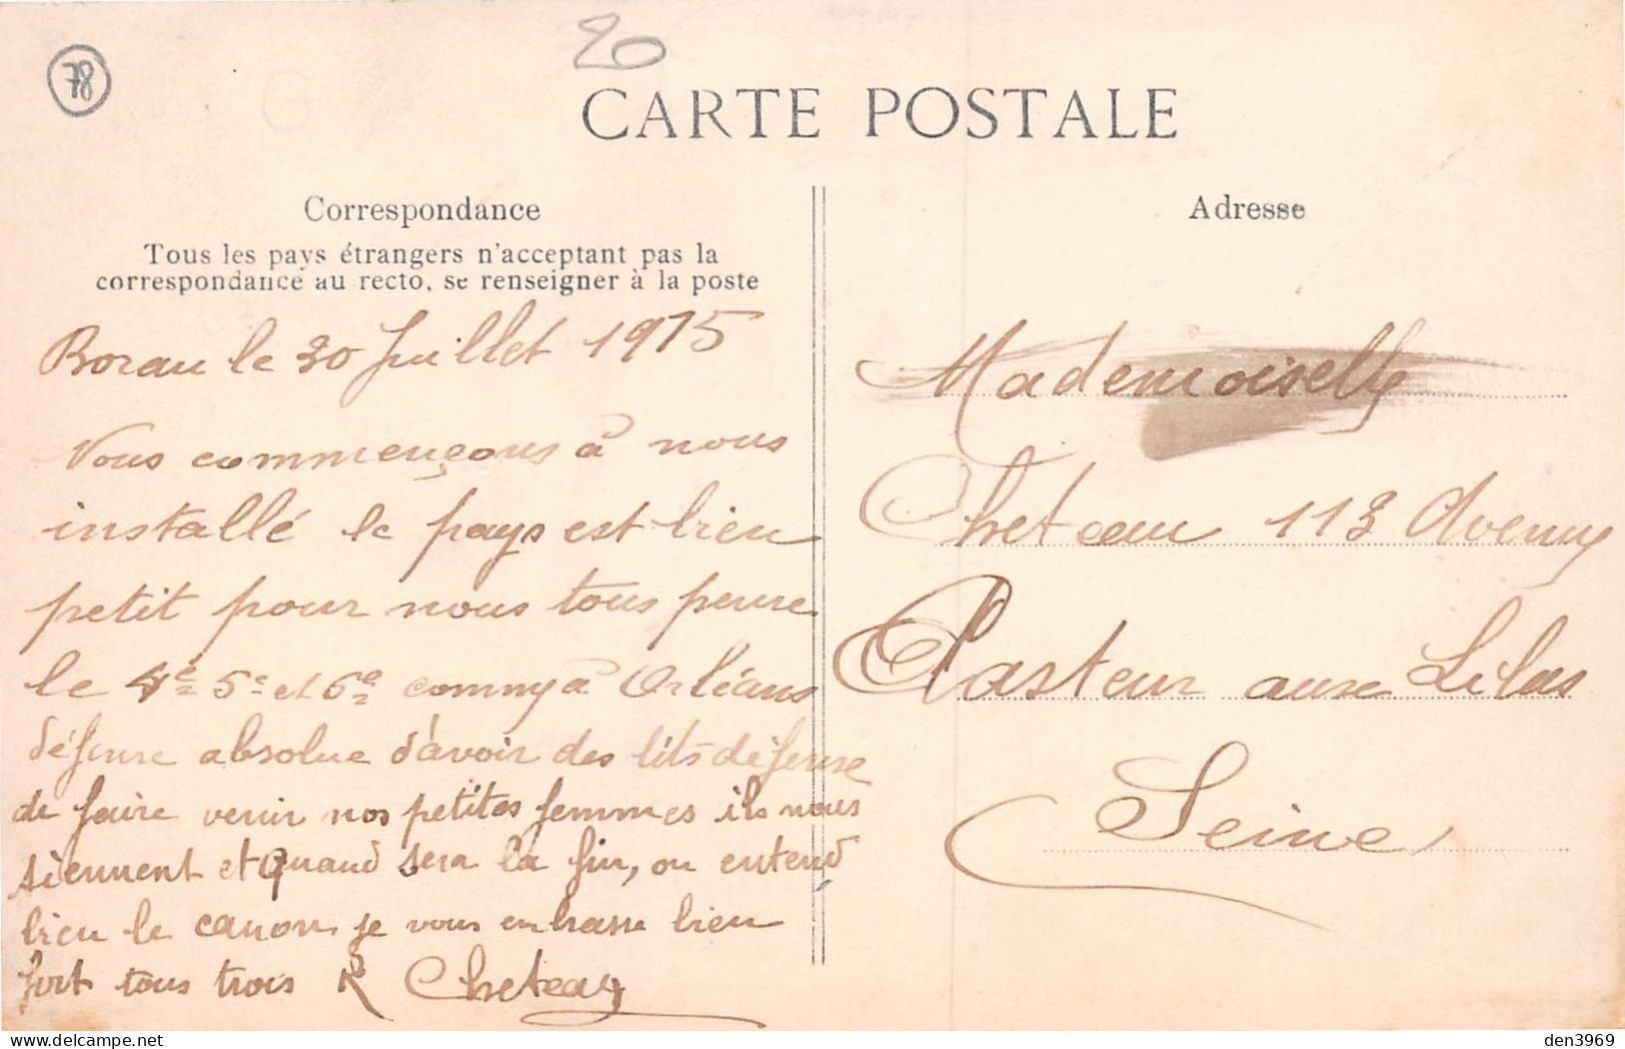 78
20
CARTE POSTALE
Correspondance
Tous les pays étrangers n'acceptant pas la
correspondance au recto, se renseigner à la poste
Boran le 30 Juillet 1915
Nous commençons à nous
installé le pays est bien
petit pour nous tous
le 4e 5e et 6e à Orléans
défense absolue d'avoir des lits défense
de faire venir nos petites femmes ils nous
tiennent et quand sera la fin, on entend
bien le canon, je vous embrasse bien
fort tous trois R Cheteau
Adresse
Mademoiselle
Cheteau 113 Avenue
Pasteur aux Lilas
Seine
den3969